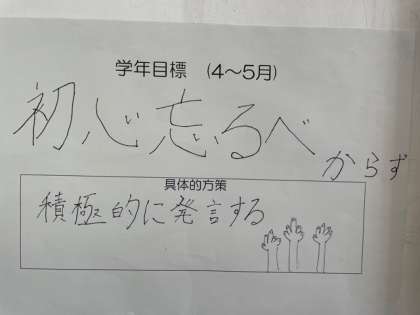 学年目標 (4～5月)
初心忘るべ
からず
具体的方策
積極的に発言する